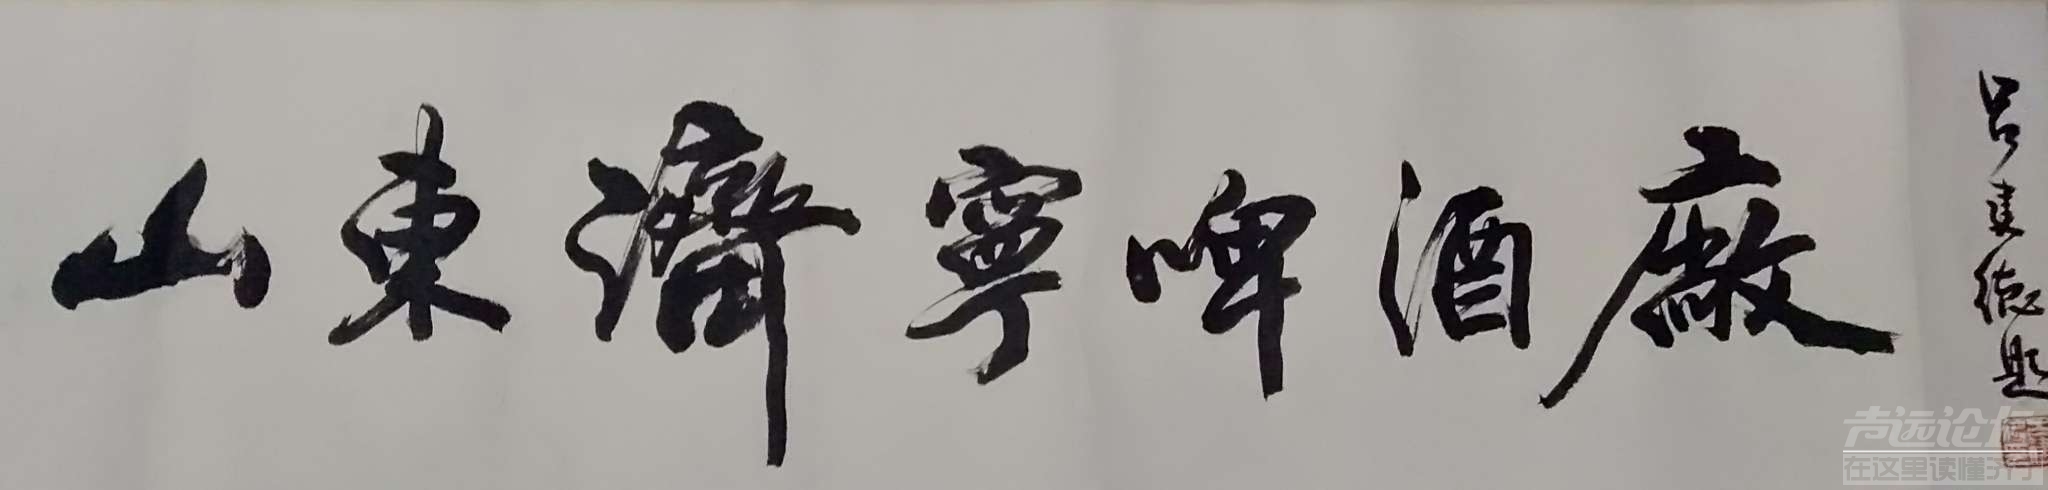 山東濟寧啤酒廠
吕建德题
声远论坛
在这里读懂济宁